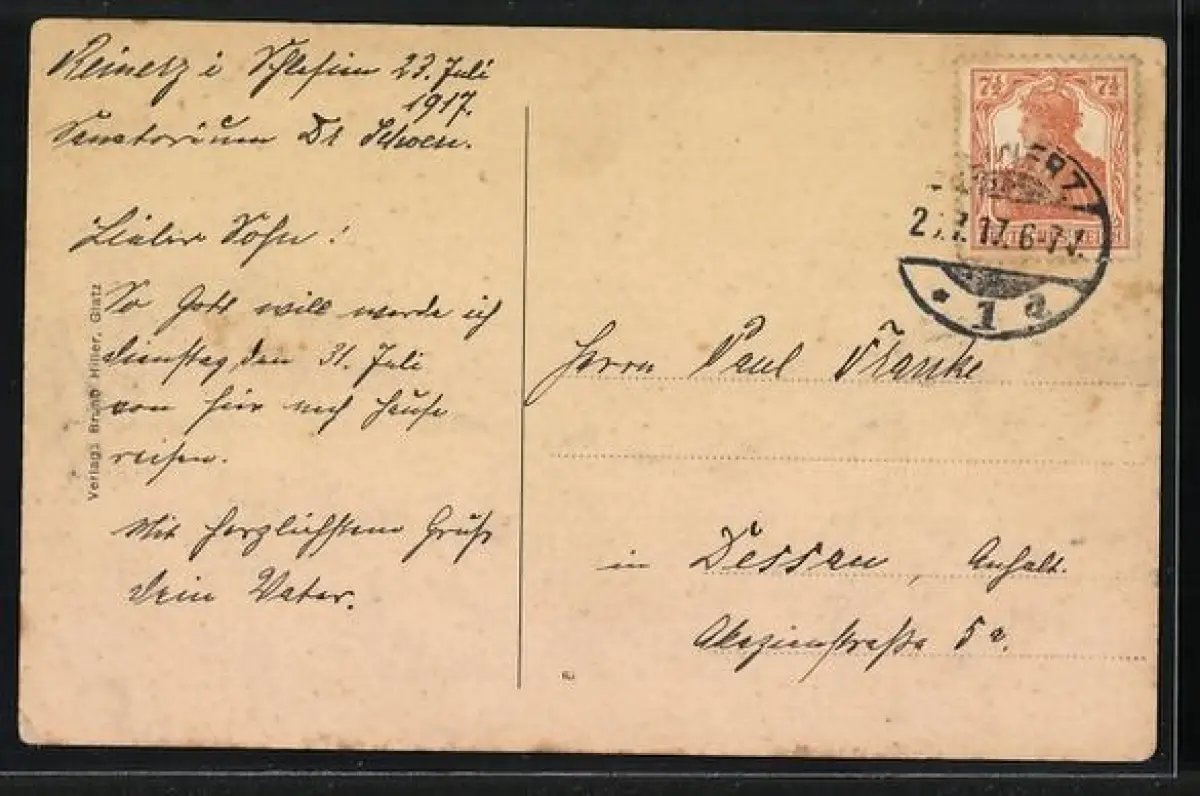 Reinerz i Schlesien 23. Juli
1917.
Sanatorium Dr Schoen.
Lieber Sohn!
So Gott will werde ich
Dienstag den 31. Juli
von hier nach Hause
reisen.
Mit herzlichstem Gruß
Dein Vater.
Verlag: Bruno Hiller, Glatz
7½ 7½
DEUTSCHES REICH
.7.17.6-7 V.
* 1 a
Herrn Paul Franke
in Dessau, Anhalt.
Akazienstraße 5a.